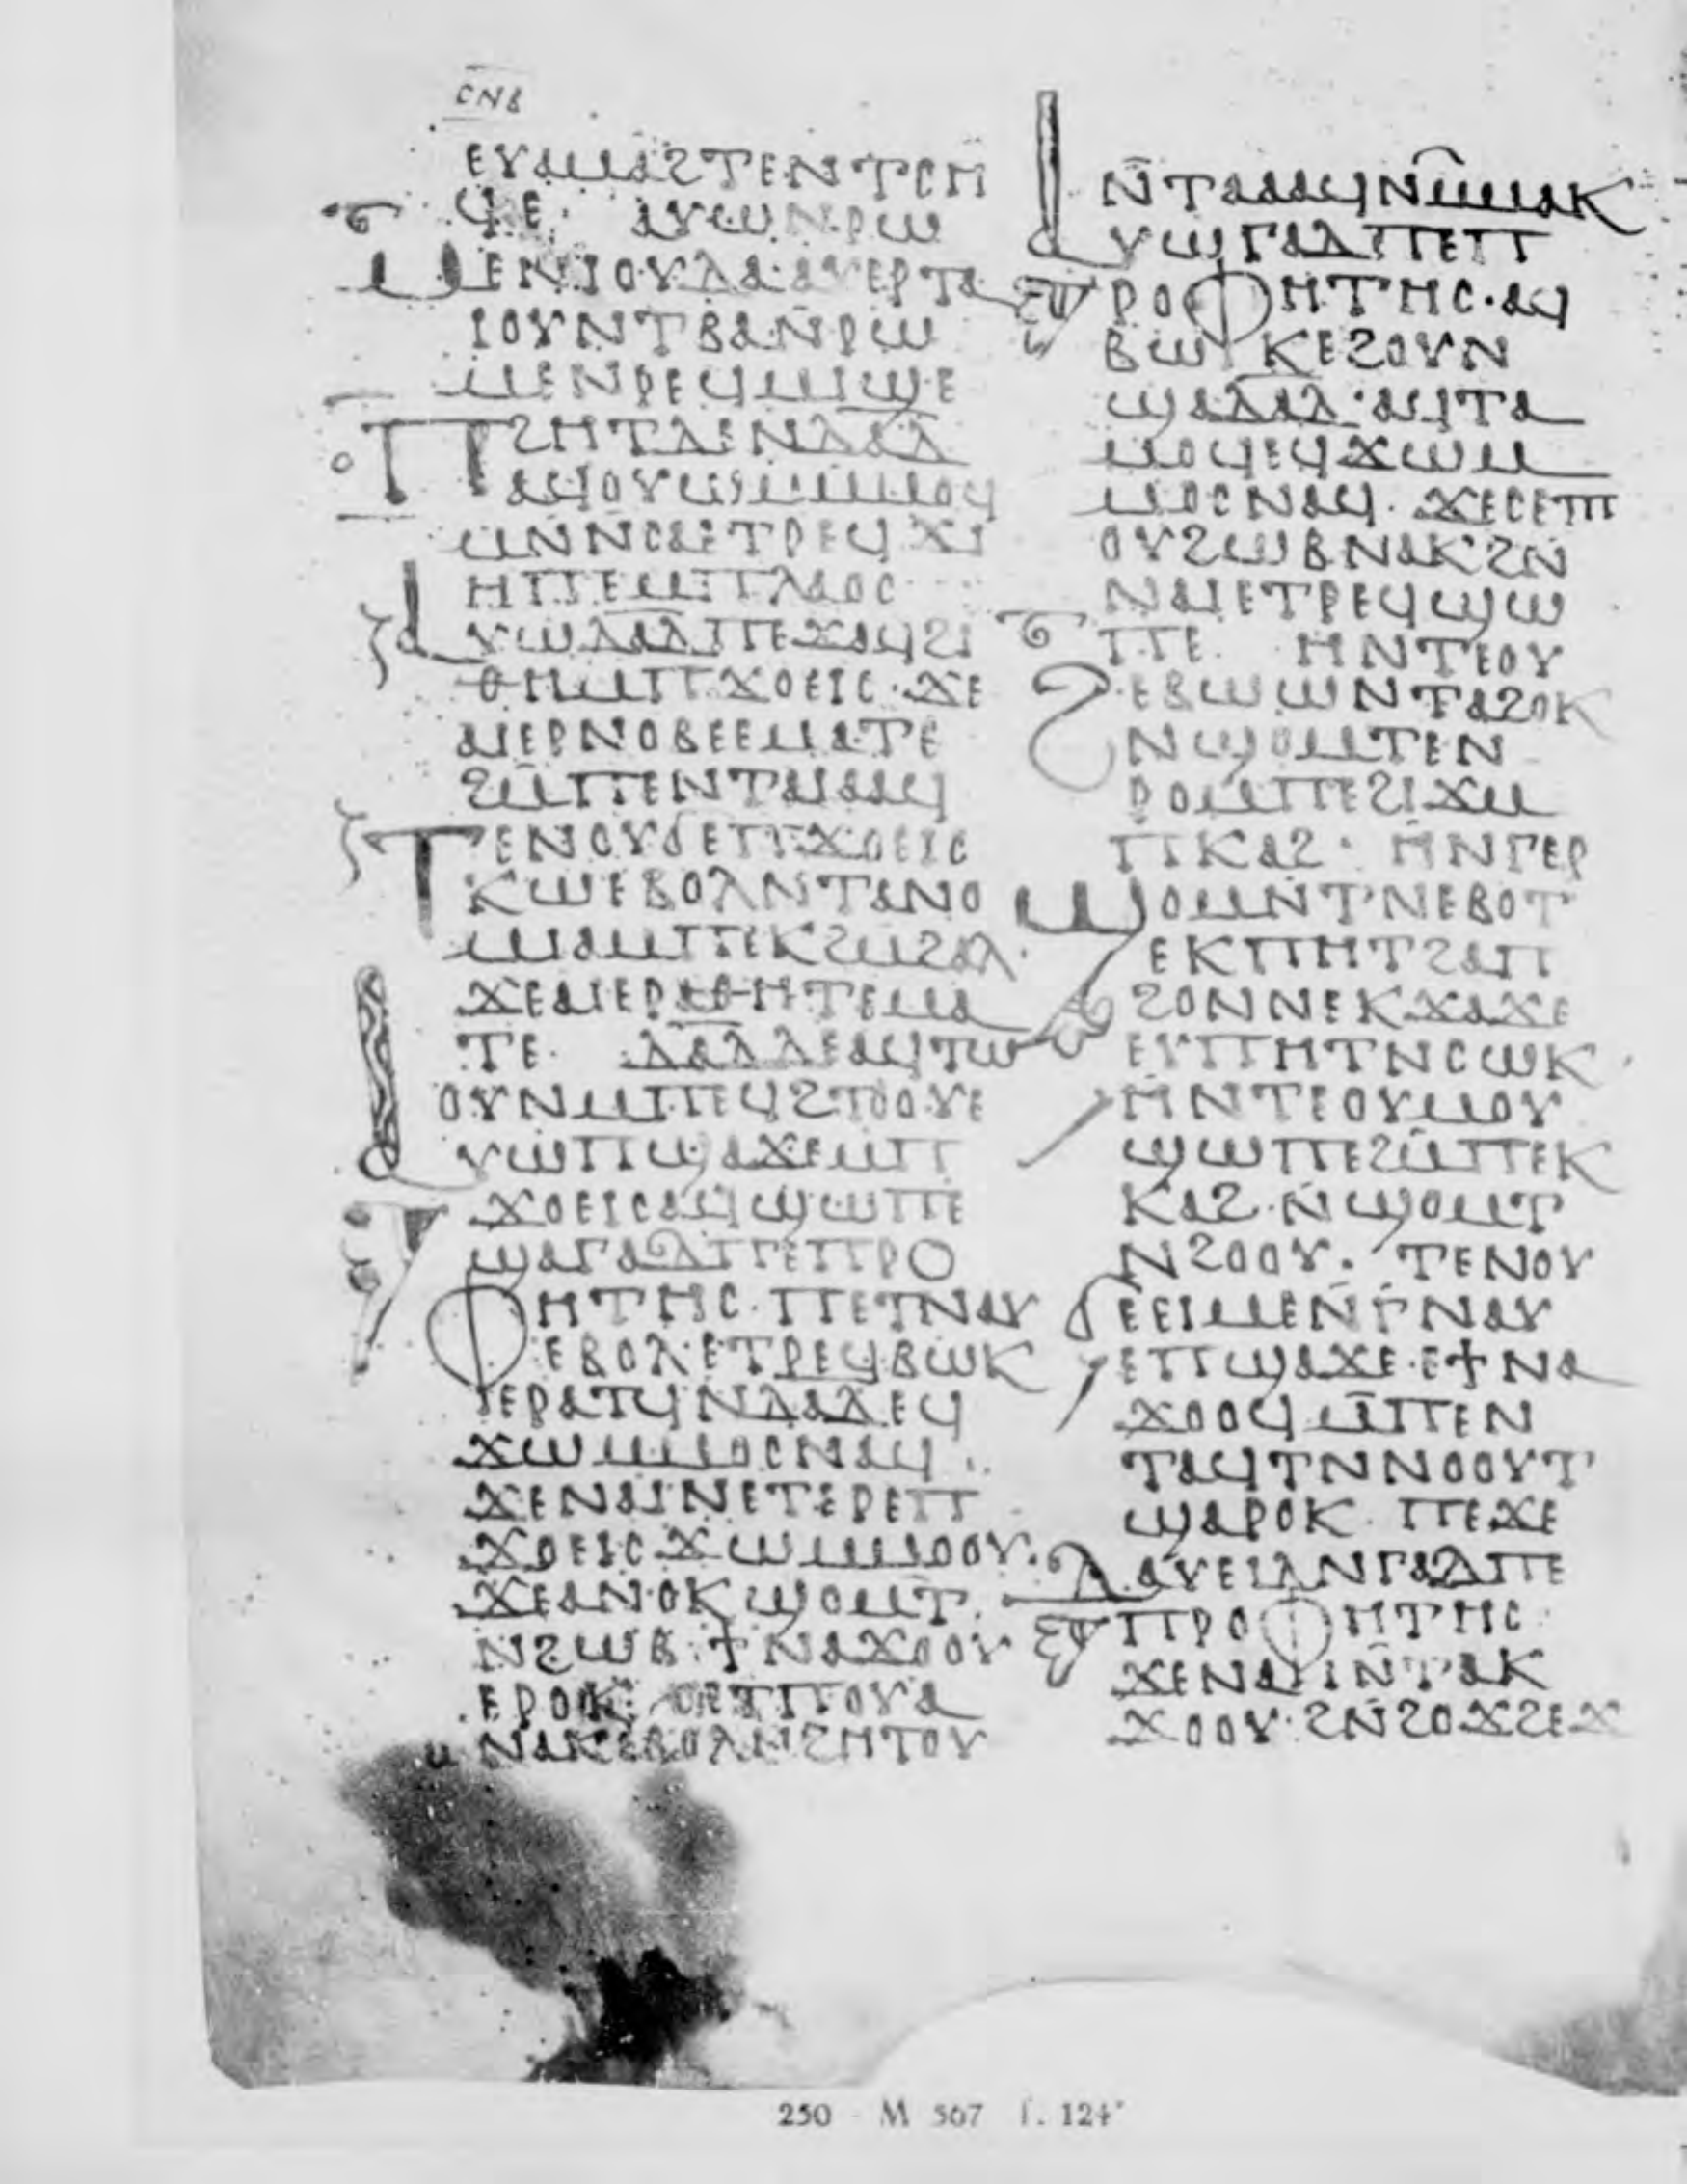 ⲥⲛⲃ
ⲉⲩⲁⲙⲁϩⲧⲉⲛⲧⲥⲏ
ϥⲉ· ⲁⲩⲱⲛⲣⲱ
ⲙⲉⲛⲓⲟⲩⲇⲁ·ⲁⲩⲉⲣⲧⲁ
ⲓⲟⲩⲛⲧⲃⲁⲛ̄ⲣⲱ
ⲙⲉⲛⲣⲉϥⲙⲓϣⲉ
ⲡϩⲏⲧⲇⲉⲛⲇⲁⲇ
ⲁϥⲟⲩⲱϣⲙⲙⲟϥ
ⲙⲛⲛⲥⲁⲉⲧⲣⲉϥϫⲓ
ⲏⲡⲉⲙⲡⲗⲁⲟⲥ
ⲁⲩⲱⲇⲁⲇⲡⲉϫⲁϥϩⲓ
ⲑⲏⲙⲡϫⲟⲉⲓⲥ·ϫⲉ
ⲁⲓⲉⲣⲛⲟⲃⲉⲉⲙⲁⲧⲉ
ϩⲙ̄ⲡⲉⲛⲧⲁⲓⲁⲁϥ
ⲧⲉⲛⲟⲩϭⲉⲡϫⲟⲉⲓⲥ
ⲕⲱⲉⲃⲟⲗⲛⲧⲁⲛⲟ
ⲙⲓⲁⲙⲡⲉⲕϩⲙϩⲁⲗ·
ϫⲉⲁⲓⲉⲣⲁⲑⲏⲧⲉⲙⲁ
ⲧⲉ· ⲇⲁⲇⲇⲉⲁϥⲧⲱ
ⲟⲩⲛⲙⲡⲉϥϩⲧⲟⲟⲩⲉ
ⲁⲩⲱⲡϣⲁϫⲉⲙⲡ
ϫⲟⲉⲓⲥⲁϥϣⲱⲡⲉ
ϣⲁⲅⲁⲇⲡⲉⲡⲣⲟ
ⲫⲏⲧⲏⲥ·ⲡⲉⲧⲛⲁⲩ
ⲉⲃⲟⲗ·ⲉⲧⲣⲉϥⲃⲱⲕ
ⲉⲣⲁⲧϥⲛⲇⲁⲇⲉϥ
ϫⲱⲙⲙⲟⲥⲛⲁϥ
ϫⲉⲛⲁⲓⲛⲉⲧⲉⲣⲉⲡ
ϫⲟⲉⲓⲥϫⲱⲙⲙⲟⲟⲩ·
ϫⲉⲁⲛⲟⲕϣⲟⲙⲧ
ⲛϩⲱⲃ·ϯⲛⲁϫⲟⲟⲩ
ⲉⲣⲟⲕ ⲡⲟⲩⲁ
ⲛⲁⲕⲉⲃⲟⲗⲛϩⲏⲧⲟⲩ
ⲛ̄ⲧⲁⲁⲁϥⲛⲙ̄ⲙⲁⲕ
ⲁⲩⲱⲅⲁⲇⲡⲉⲡ
ⲣⲟⲫⲏⲧⲏⲥ·ⲁϥ
ⲃⲱⲕⲉϩⲟⲩⲛ
ϣⲁⲇⲁⲇ·ⲁϥⲧⲁ
ⲙⲟϥⲉϥϫⲱⲙ
ⲙⲟⲥⲛⲁϥ·ϫⲉⲥⲉⲡ
ⲟⲩϩⲱⲃⲛⲁⲕϩⲛ̄
ⲛⲁⲓⲉⲧⲣⲉϥϣⲱ
ⲡⲉ· ⲏⲛⲧⲉⲟⲩ
ϩⲉⲃⲱⲱⲛⲧⲁϩⲟⲕ
ⲛϣⲟⲙⲧⲉⲛ
ⲣⲟⲙⲡⲉϩⲓϫⲙ
ⲡⲕⲁϩ· ⲏⲛⲅⲉⲣ
ϣⲟⲙⲛⲧⲛⲉⲃⲟⲧ
ⲉⲕⲡⲏⲧϩⲁⲡ
ϩⲟⲛⲛⲉⲕϫⲁϫⲉ
ⲉⲩⲡⲏⲧⲛⲥⲱⲕ·
ⲏⲛⲧⲉⲟⲩⲙⲟⲩ
ϣⲱⲡⲉϩⲙ̄ⲡⲉⲕ
ⲕⲁϩ·ⲛ̄ϣⲟⲙⲧ
ⲛϩⲟⲟⲩ· ⲧⲉⲛⲟⲩ
ϭⲉⲉⲓⲙⲉⲛⲅ̄ⲛⲁⲩ
ⲉⲡϣⲁϫⲉ·ⲉϯⲛⲁ
ϫⲟⲟϥⲙ̄ⲡⲉⲛ
ⲧⲁϥⲧⲛⲛⲟⲟⲩⲧ
ϣⲁⲣⲟⲕ· ⲡⲉϫⲉ
ⲇⲁⲩⲉⲓⲇⲛⲅⲁⲇⲡⲉ
ⲡⲣⲟⲫⲏⲧⲏⲥ
ϫⲉⲛⲁⲓⲛ̄ⲧⲁⲕ
ϫⲟⲟⲩ·ϩⲛ̄ϩⲟϫϩⲉϫ
250 M 567 f. 124ᵛ